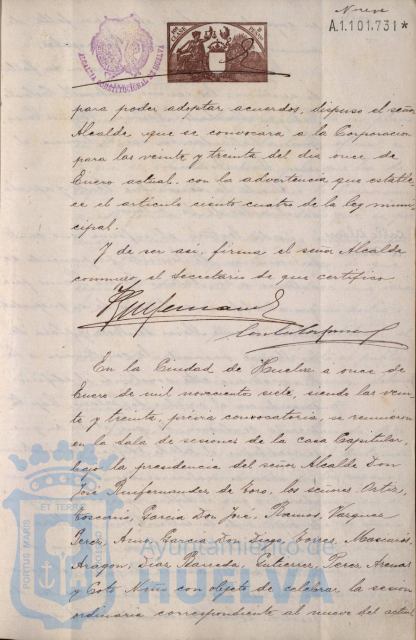 Nueve
A.1.101.731*
ALCALDIA CONSTITUCIONAL DE HUELVA
para poder adoptar acuerdos, dispuso el señor
Alcalde que se convocara a la Corporacion
para las veinte y treinta del dia once de
Enero actual, con la advertencia que estable
ce el articulo ciento cuatro de la ley muni
cipal.
Y de ser asi, firma el señor Alcalde
conmigo, el Secretario de que certifico
En la Ciudad de Huelva a once de
Enero de mil novecientos siete, siendo las vein
te y treinta, previa convocatoria, se reunieron
en la Sala de sesiones de la casa Capitular,
bajo la presidencia del señor Alcalde Don
José Ruifernandez de Toro, los señores Ortiz,
Toscano, Garcia Don José, Ramos, Vazquez
Perez, Garcia Don Diego, Torres, Mascarós,
Aragon, Diaz Barreda, Gutierrez, Perez Arenas
y Coto Mora con objeto de celebrar la sesion
ordinaria correspondiente al nueve del actual
PORTUS MARIS ET TERRAE
Ayuntamiento de
HUELVA